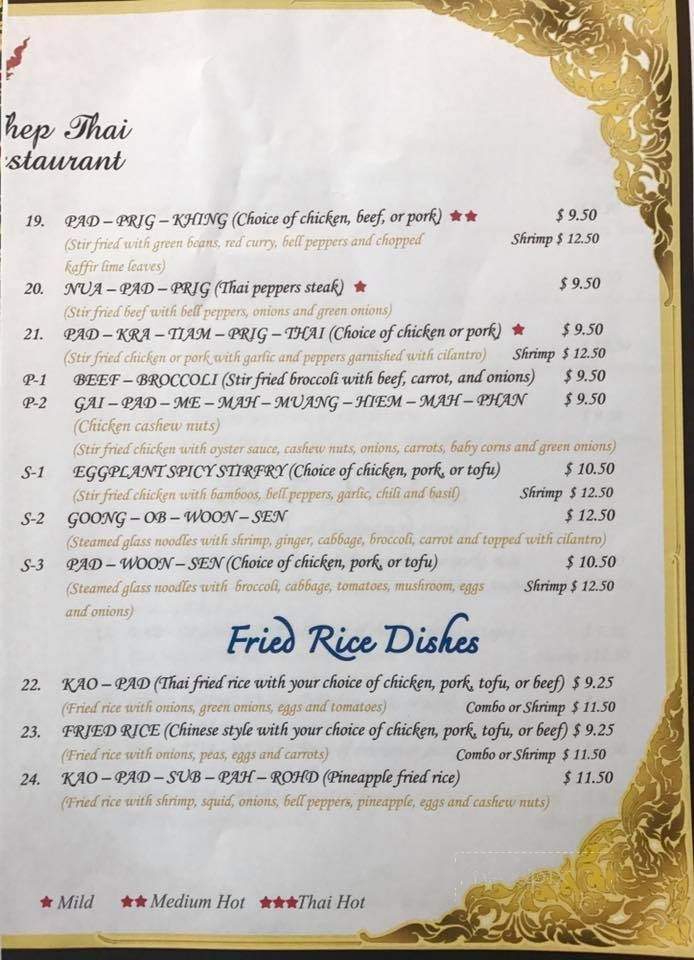 hep Thai
staurant
19. PAD – PRIG – KHING (Choice of chicken, beef, or pork) ★★ $ 9.50
(Stir fried with green beans, red curry, bell peppers and chopped Shrimp $ 12.50
kaffir lime leaves)
20. NUA – PAD – PRIG (Thai peppers steak) ★ $ 9.50
(Stir fried beef with bell peppers, onions and green onions)
21. PAD – KRA – TIAM – PRIG – THAI (Choice of chicken or pork) ★ $ 9.50
(Stir fried chicken or pork with garlic and peppers garnished with cilantro) Shrimp $ 12.50
P-1 BEEF – BROCCOLI (Stir fried broccoli with beef, carrot, and onions) $ 9.50
P-2 GAI – PAD – ME – MAH – MUANG – HIEM – MAH – PHAN $ 9.50
(Chicken cashew nuts)
(Stir fried chicken with oyster sauce, cashew nuts, onions, carrots, baby corns and green onions)
S-1 EGGPLANT SPICY STIRFRY (Choice of chicken, pork, or tofu) $ 10.50
(Stir fried chicken with bamboos, bell peppers, garlic, chili and basil) Shrimp $ 12.50
S-2 GOONG – OB – WOON – SEN $ 12.50
(Steamed glass noodles with shrimp, ginger, cabbage, broccoli, carrot and topped with cilantro)
S-3 PAD – WOON – SEN (Choice of chicken, pork, or tofu) $ 10.50
(Steamed glass noodles with broccoli, cabbage, tomatoes, mushroom, eggs Shrimp $ 12.50
and onions)
Fried Rice Dishes
22. KAO – PAD (Thai fried rice with your choice of chicken, pork, tofu, or beef) $ 9.25
(Fried rice with onions, green onions, eggs and tomatoes) Combo or Shrimp $ 11.50
23. FRIED RICE (Chinese style with your choice of chicken, pork, tofu, or beef) $ 9.25
(Fried rice with onions, peas, eggs and carrots) Combo or Shrimp $ 11.50
24. KAO – PAD – SUB – PAH – ROHD (Pineapple fried rice) $ 11.50
(Fried rice with shrimp, squid, onions, bell peppers, pineapple, eggs and cashew nuts)
★ Mild ★★ Medium Hot ★★★Thai Hot